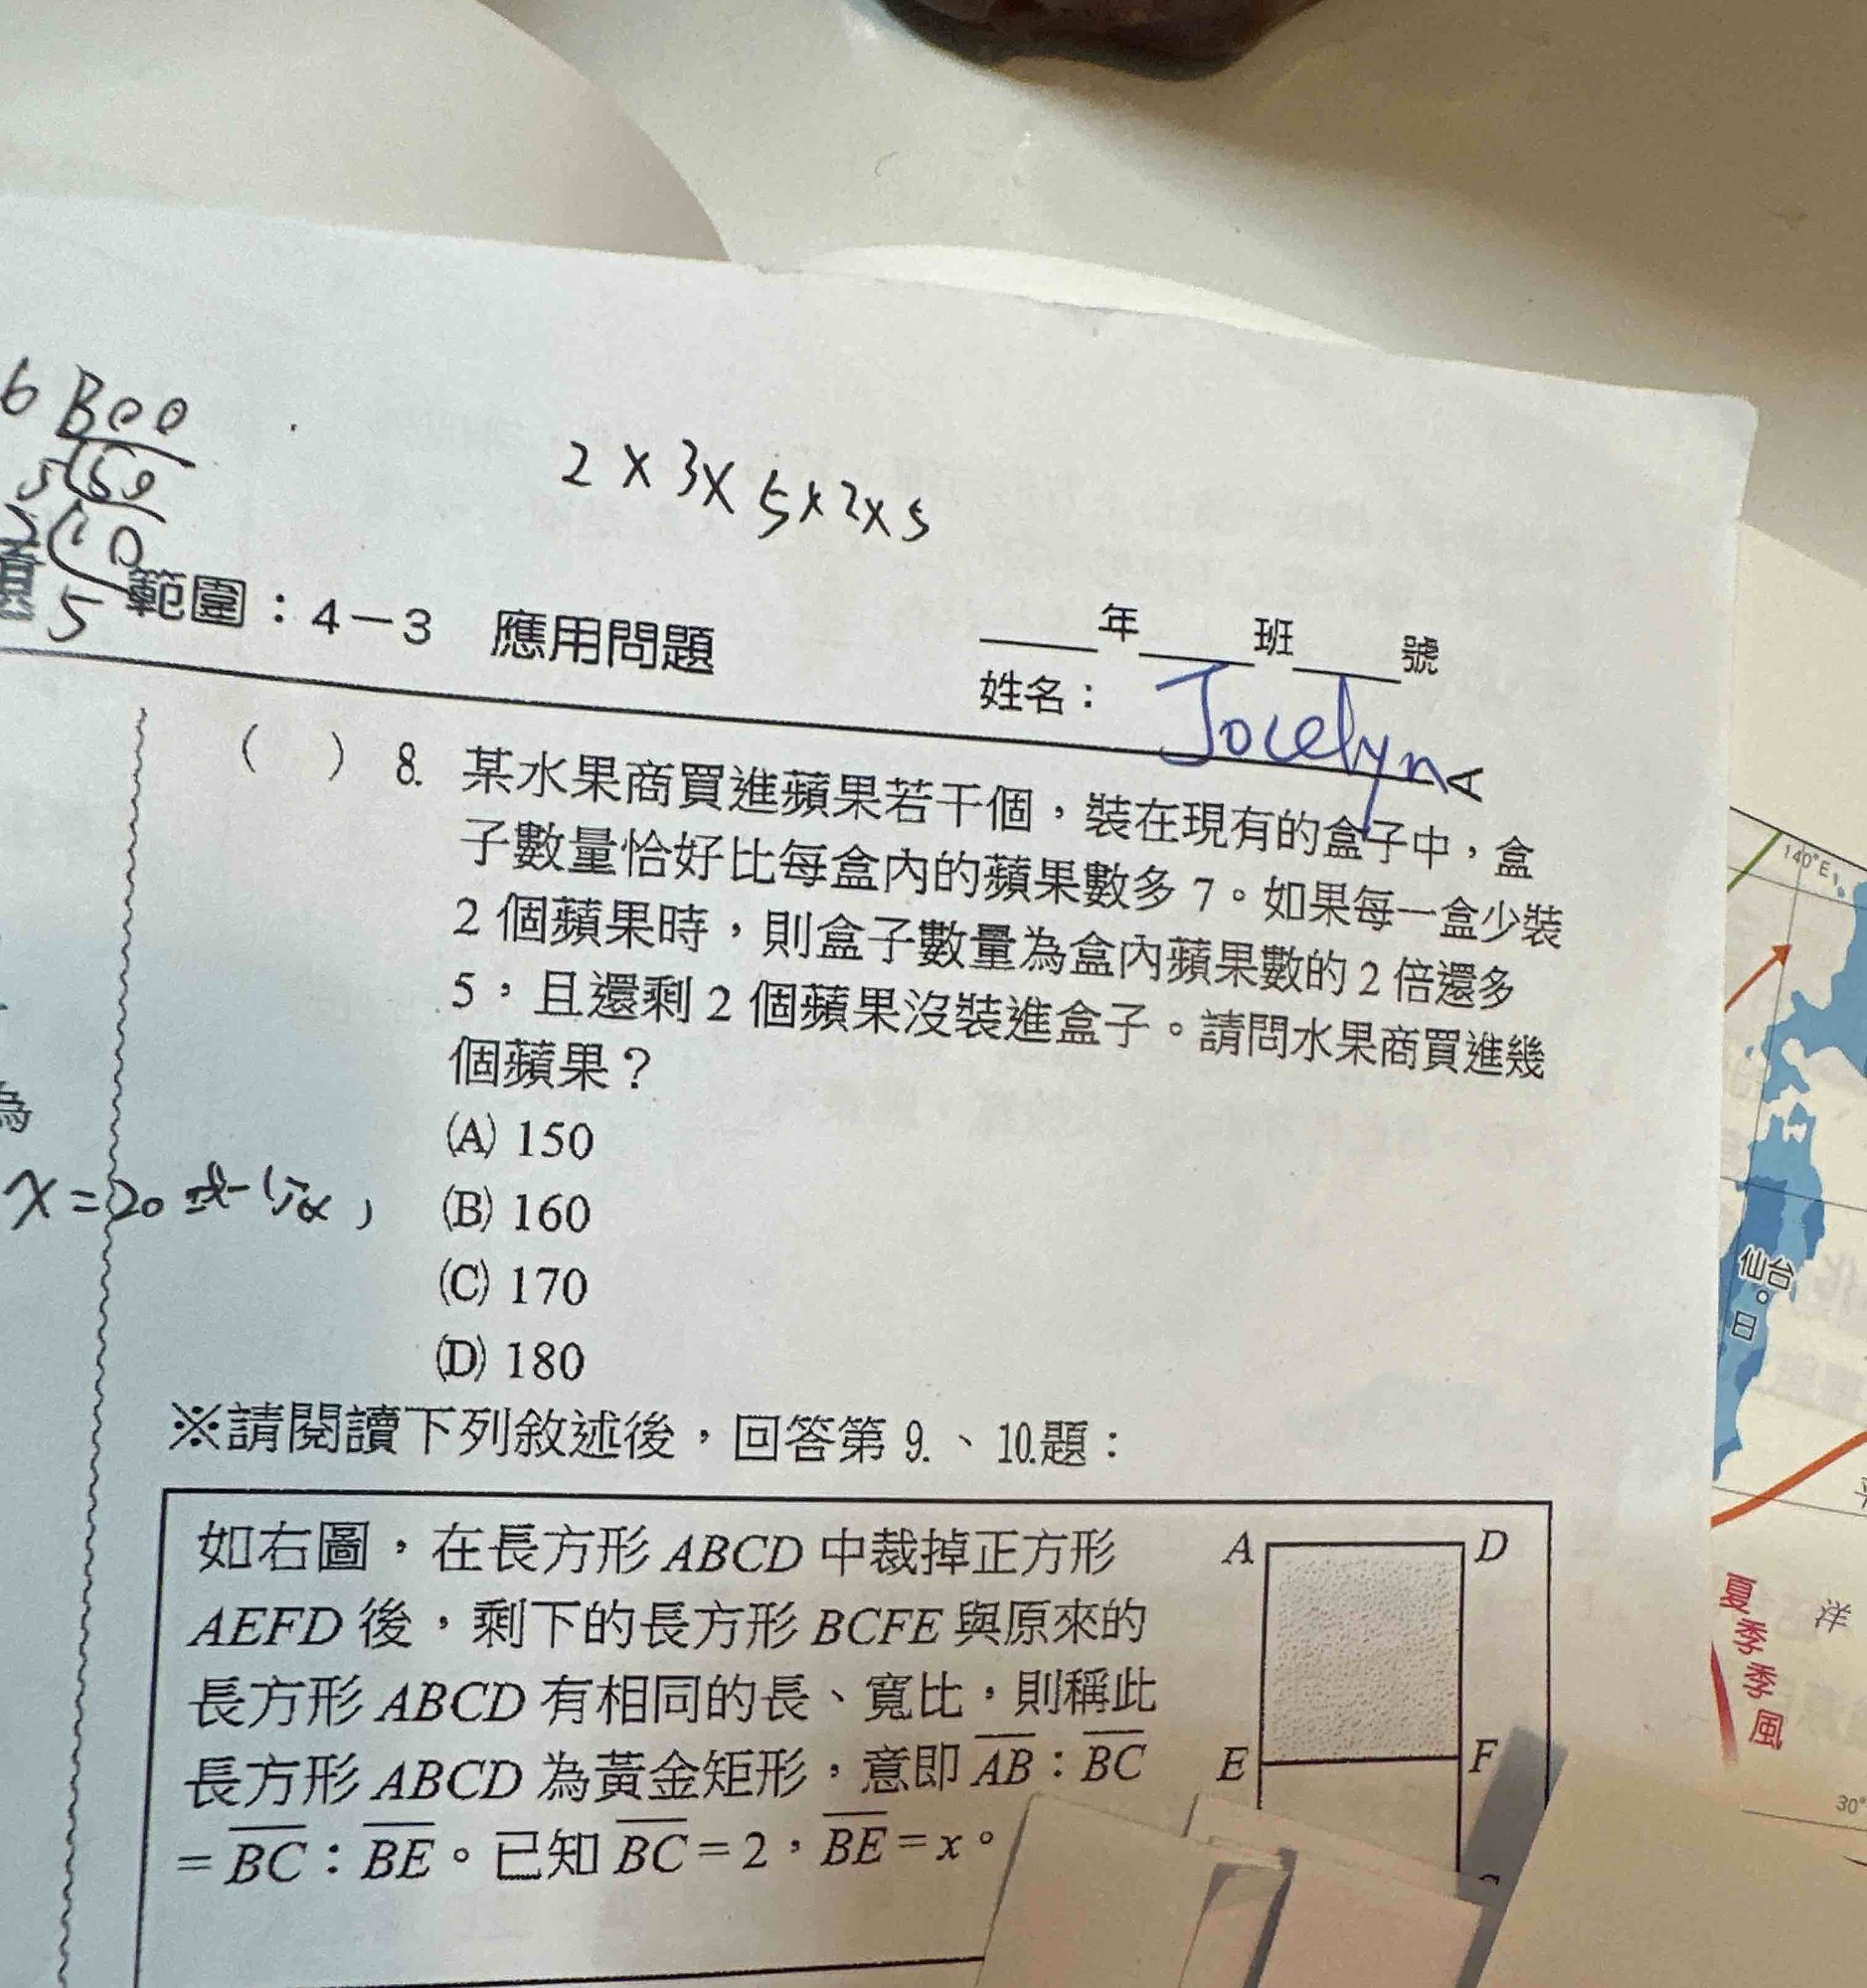 6 300
5 50
2 10
5
2×3×5×2×5
範圍：4－3 應用問題
年 班 號
姓名： Jocelyn A
（ ）8. 某水果商買進蘋果若干個，裝在現有的盒子中，盒
子數量恰好比每盒內的蘋果數多 7。如果每一盒少裝
2 個蘋果時，則盒子數量為盒內蘋果數的 2 倍還多
5，且還剩 2 個蘋果沒裝進盒子。請問水果商買進幾
個蘋果？
(A) 150
(B) 160
(C) 170
(D) 180
為
x=20
※請閱讀下列敘述後，回答第 9.、10.題：
如右圖，在長方形 ABCD 中裁掉正方形
AEFD 後，剩下的長方形 BCFE 與原來的
長方形 ABCD 有相同的長、寬比，則稱此
長方形 ABCD 為黃金矩形，意即 AB：BC
＝BC：BE。已知 BC＝2，BE＝x。
A D
E F
140°E
仙台
日
夏季季風
洋
30°